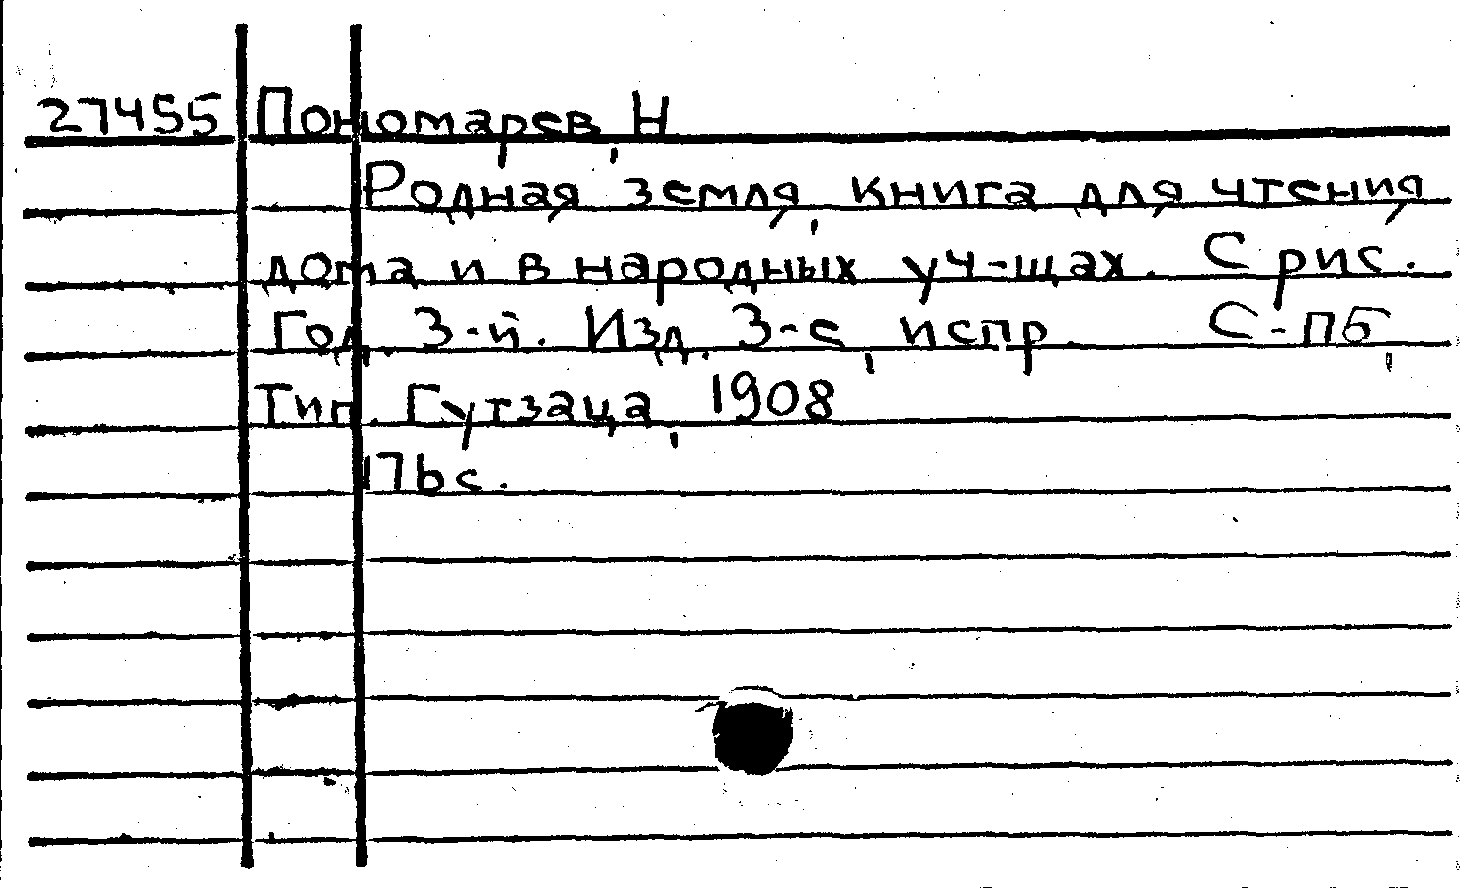 27455 Пономарев, Н
Родная земля, книга для чтения
дома и в народных уч-щах. С рис.
Год 3-й. Изд. 3-е, испр. С-пб,
Тип. Гутзаца, 1908
176 с.